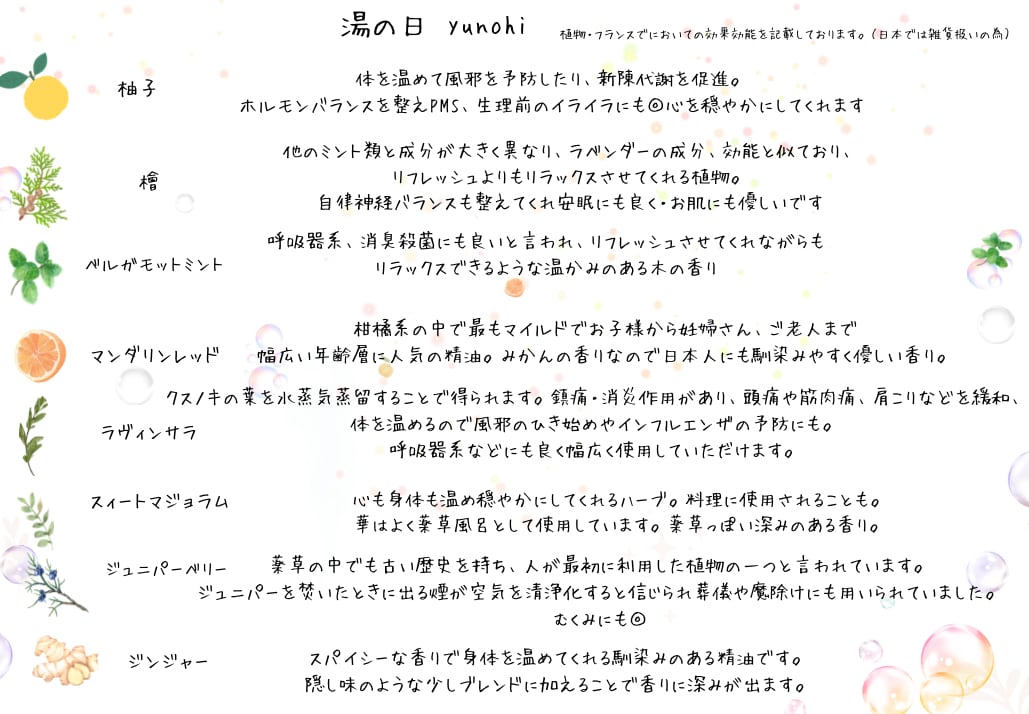 湯の日 yunohi
植物・フランスでにおいての効果効能を記載しております。（日本では雑貨扱いの為）
柚子
体を温めて風邪を予防したり、新陳代謝を促進。
ホルモンバランスを整えPMS、生理前のイライラにも◎心を穏やかにしてくれます
檜
他のミント類と成分が大きく異なり、ラベンダーの成分、効能と似ており、
リフレッシュよりもリラックスさせてくれる植物。
自律神経バランスも整えてくれ安眠にも良く・お肌にも優しいです
ベルガモットミント
呼吸器系、消臭殺菌にも良いと言われ、リフレッシュさせてくれながらも
リラックスできるような温かみのある木の香り
マンダリンレッド
柑橘系の中で最もマイルドでお子様から妊婦さん、ご老人まで
幅広い年齢層に人気の精油。みかんの香りなので日本人にも馴染みやすく優しい香り。
ラヴィンサラ
クスノキの葉を水蒸気蒸留することで得られます。鎮痛・消炎作用があり、頭痛や筋肉痛、肩こりなどを緩和、
体を温めるので風邪のひき始めやインフルエンザの予防にも。
呼吸器系などにも良く幅広く使用していただけます。
スィートマジョラム
心も身体も温め穏やかにしてくれるハーブ。料理に使用されることも。
華はよく薬草風呂として使用しています。薬草っぽい深みのある香り。
ジュニパーベリー
薬草の中でも古い歴史を持ち、人が最初に利用した植物の一つと言われています。
ジュニパーを焚いたときに出る煙が空気を清浄化すると信じられ葬儀や魔除けにも用いられていました。
むくみにも◎
ジンジャー
スパイシーな香りで身体を温めてくれる馴染みのある精油です。
隠し味のような少しブレンドに加えることで香りに深みが出ます。